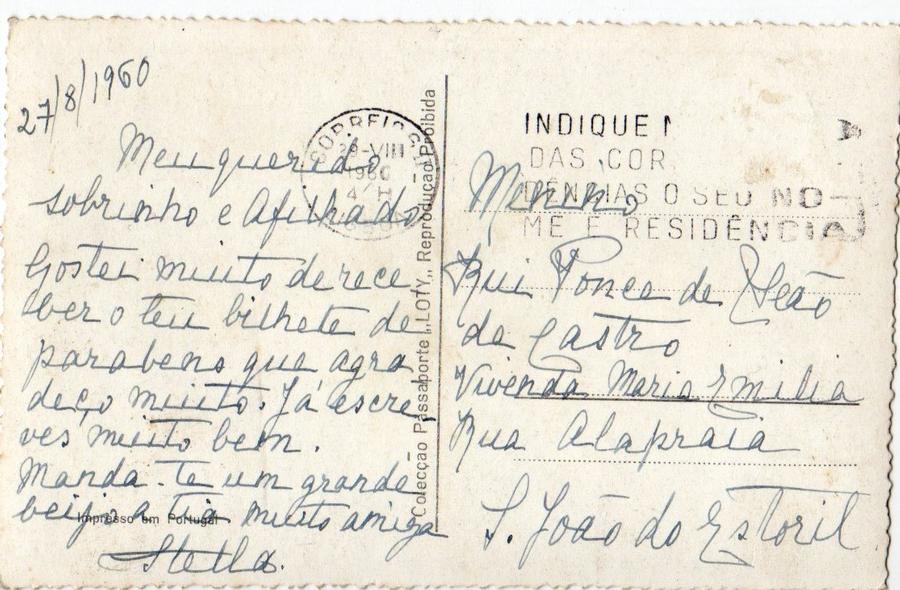 27/8/1960
Meu querido
sobrinho e Afilhado
Gostei muito de rece
ber o teu bilhete de
parabens que agra
deço muito. Já escre
ves muito bem.
Manda-te um grande
beijo a tia muito amiga
Stella.
Impresso em Portugal
Colecção Passaporte „LOTY„ Reprodução Proibida
CORREIOS
28-VIII
1960
INDIQUE
DAS COR
DÊNCIAS O SEU NO-
ME E RESIDÊNCIA
Menino
Rui Ponce de Leão
de Castro
Vivenda Maria Emilia
Rua Alapraia
S. João do Estoril